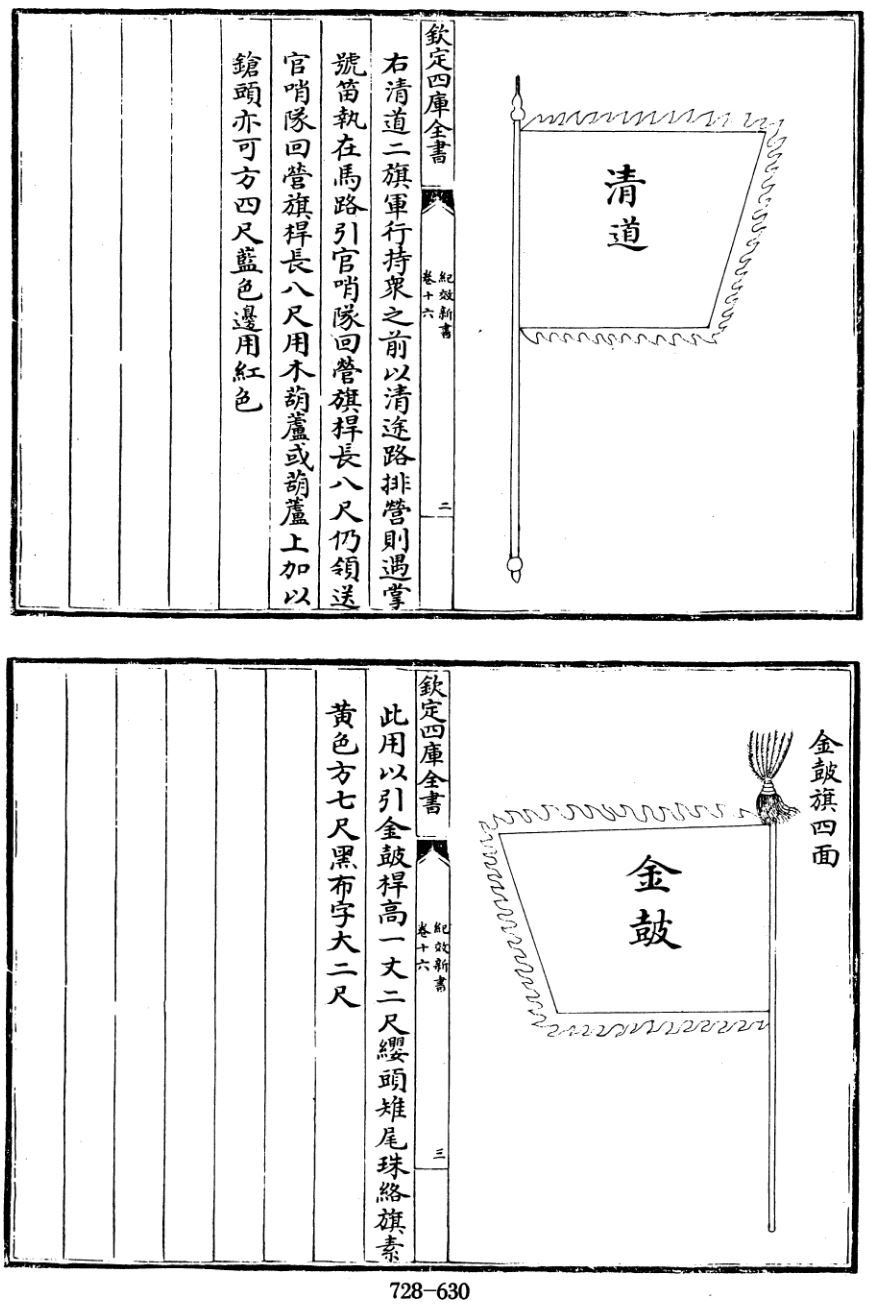 清道
欽定四庫全書
紀效新書
卷十六
二
右清道二旗軍行持衆之前以清途路排營則遇掌
號笛執在馬路引官哨隊回營旗桿長八尺仍領送
官哨隊回營旗桿長八尺用木葫蘆或葫蘆上加以
鎗頭亦可方四尺藍色邊用紅色
金鼓旗四面
金鼓
欽定四庫全書
紀效新書
卷十六
三
此用以引金鼓桿高一丈二尺纓頭雉尾珠絡旗素
黃色方七尺黑布字大二尺
728-630